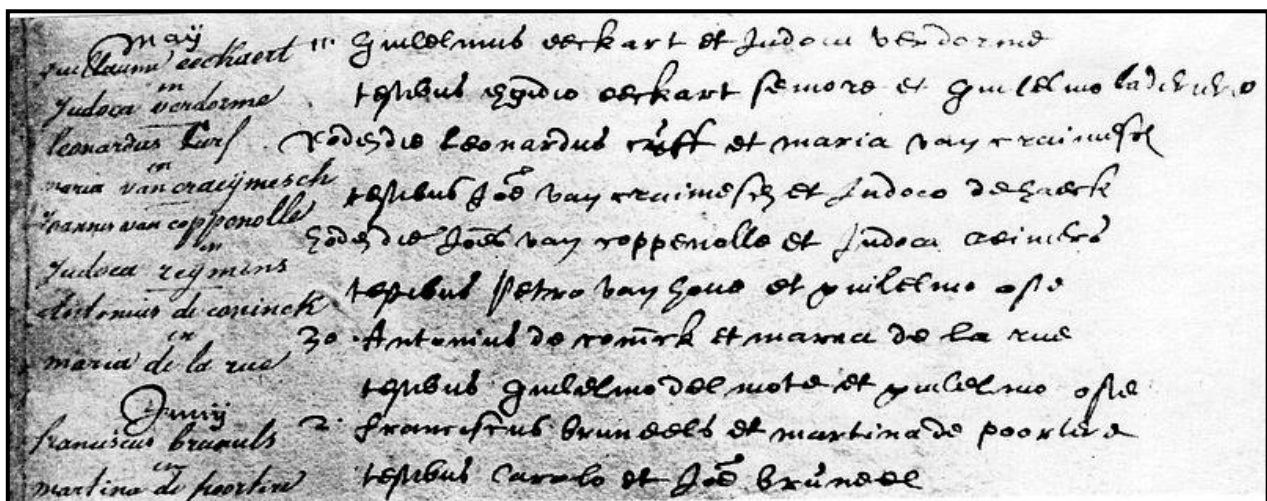 Maÿ
guillaume eeckaert
en
Judoca verdorme
leonardus Curf
en
maria van craeÿmesch
Joannes van coppenolle
en
Judoca reÿmens
Antonius de coninck
en
maria de la rue
Junij
franciscus bruneels
en
martina de poortere
Guilelmus eeckart et Judoca verdorme
testibus Egidio eeckart seniore et guilelmo
Eodem die Leonardus et maria van craimesch
testibus Joe van craimesch et Judoco de haeck
Eodem die Joes van coppenolle et Judoca reimers
testibus Petro van hove et guilelmo oste
30 Antonius de coninck et maria de la rue
testibus guilelmo del mote et guilelmo oste
2 franciscus bruneels et martina de poortere
testibus Carolo et Joe bruneel